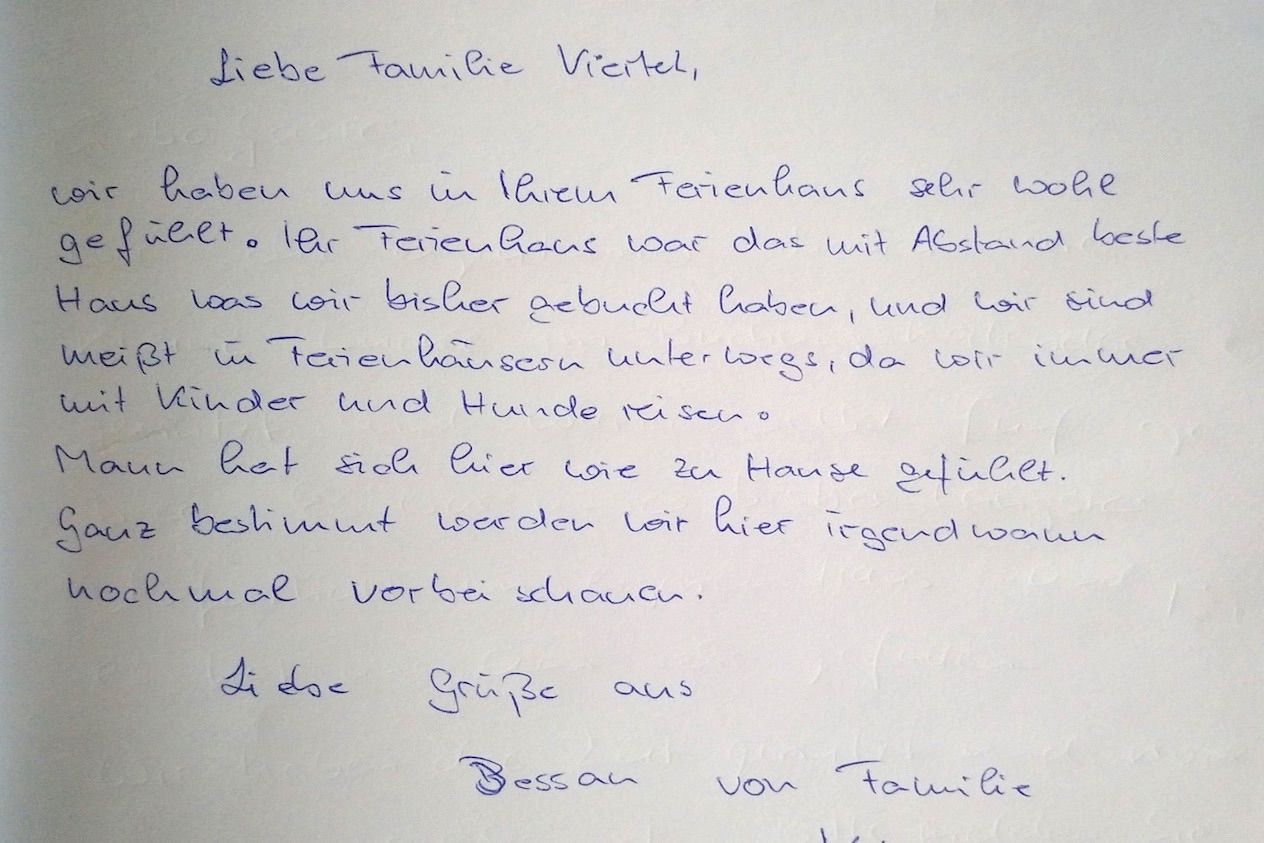 Liebe Familie Viertel,
wir haben uns in Ihrem Ferienhaus sehr wohl
gefühlt. Ihr Ferienhaus war das mit Abstand beste
Haus was wir bisher gebucht haben, und wir sind
meißt in Ferienhäusern unterwegs, da wir immer
mit Kinder und Hunde reisen.
Mann hat sich hier wie zu Hause gefühlt.
Ganz bestimmt werden wir hier irgendwann
nochmal vorbei schauen.
Liebe Grüße aus
Bessan von Familie